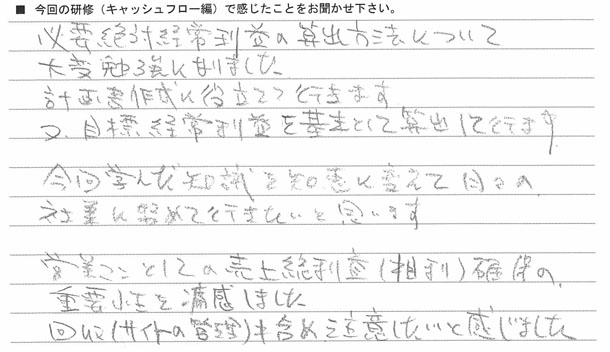 ■ 今回の研修（キャッシュフロー編）で感じたことをお聞かせ下さい。
必要絶対経常利益の算出方法について
大変勉強になりました。
計画書作成に役立てて行きます
又、目標経常利益を基準として算出して行きます。
今回学んだ知識を知恵に変えて日々の
社業に努めて行きたいと思います
営業マンとしての売上総利益(粗利)確保の
重要性を痛感しました
回収(サイトの管理)も含め注意したいと感じました